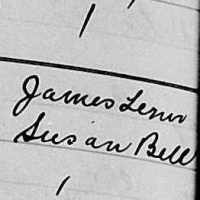 1
James Lenn
Susan Bell
1